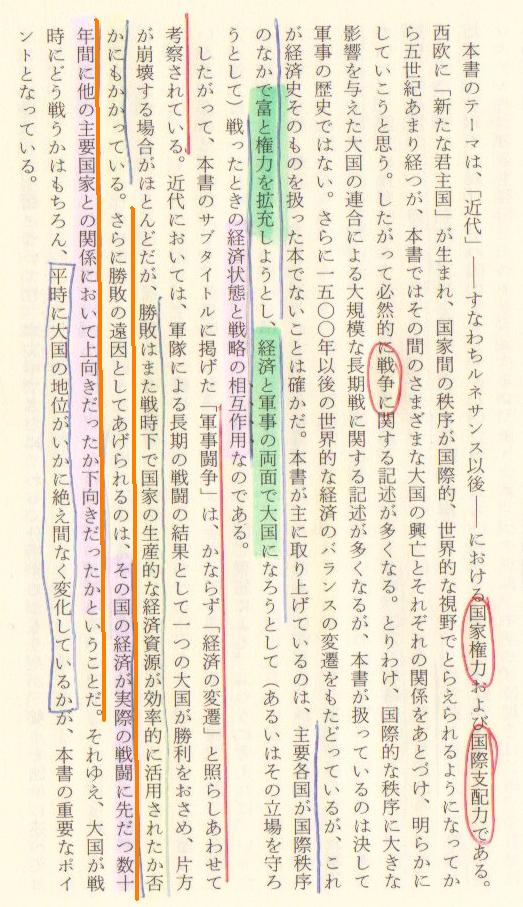 本書のテーマは、「近代」――すなわちルネサンス以後――における国家権力および国際支配力である。
西欧に「新たな君主国」が生まれ、国家間の秩序が国際的、世界的な視野でとらえられるようになってか
ら五世紀あまり経つが、本書ではその間のさまざまな大国の興亡とそれぞれの関係をあとづけ、明らかに
していこうと思う。したがって必然的に戦争に関する記述が多くなる。とりわけ、国際的な秩序に大きな
影響を与えた大国の連合による大規模な長期戦に関する記述が多くなるが、本書が扱っているのは決して
軍事の歴史ではない。さらに一五〇〇年以後の世界的な経済のバランスの変遷をもたどっているが、これ
が経済史そのものを扱った本でないことは確かだ。本書が主に取り上げているのは、主要各国が国際秩序
のなかで富と権力を拡充しようとし、経済と軍事の両面で大国になろうとして（あるいはその立場を守ろ
うとして）戦ったときの経済状態と戦略の相互作用なのである。
したがって、本書のサブタイトルに掲げた「軍事闘争」は、かならず「経済の変遷」と照らしあわせて
考察されている。近代においては、軍隊による長期の戦闘の結果として一つの大国が勝利をおさめ、片方
が崩壊する場合がほとんどだが、勝敗はまた戦時下で国家の生産的な経済資源が効率的に活用されたか否
かにもかかっている。さらに勝敗の遠因としてあげられるのは、その国の経済が実際の戦闘に先だつ数十
年間に他の主要国家との関係において上向きだったか下向きだったかということだ。それゆえ、大国が戦
時にどう戦うかはもちろん、平時に大国の地位がいかに絶え間なく変化しているかが、本書の重要なポイ
ントとなっている。